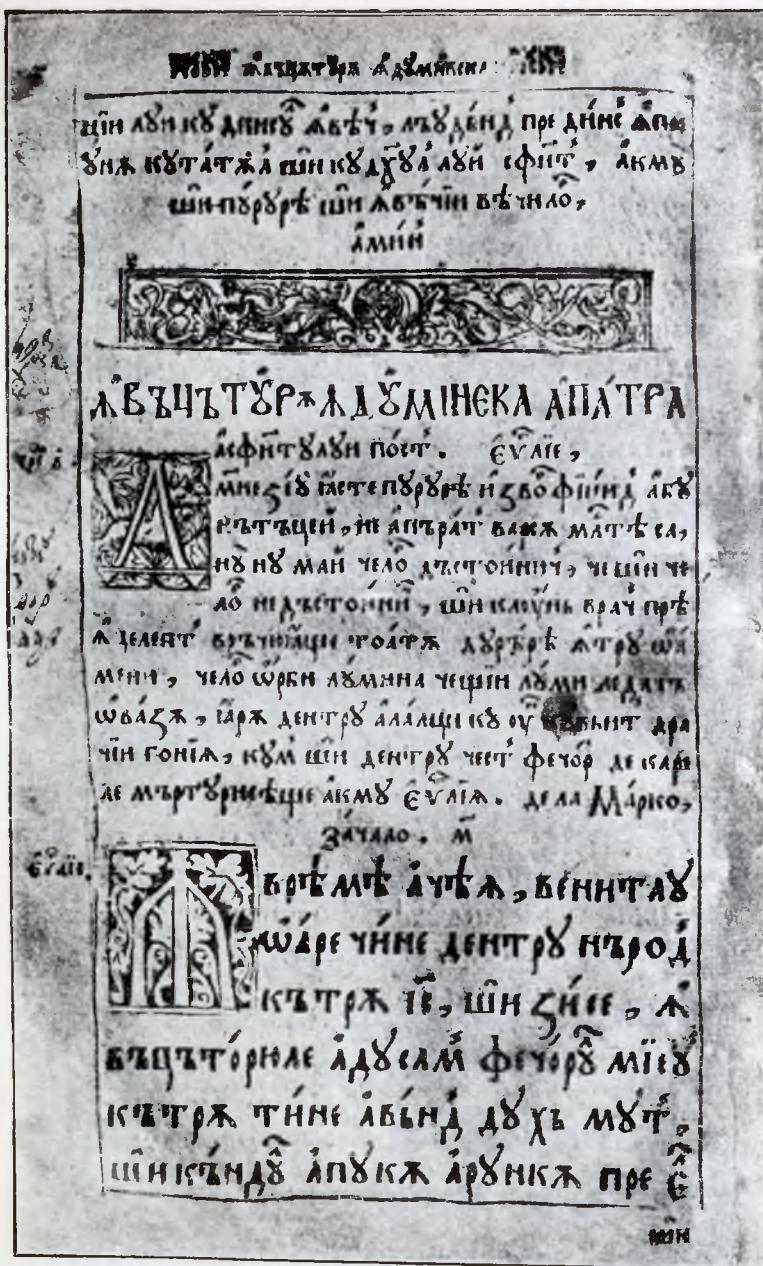 ꙟвъцътꙋрь ꙟдꙋминека
шїи лꙋи кꙋ денеꙋ ꙟвѣч, лъꙋдънд пре дине ꙟпре
ꙋнѫ кꙋ татѫл шїи кꙋ дꙋхꙋл лꙋй сфн҃т, акмꙋ
шїи пꙋрꙋрѣ шїи ꙟвѣчїи вѣчило,
амин
ꙞВЪЦЪТꙊРѪ ꙞДꙊМІНЕКА АПАТРА
асфн҃тꙋлꙋи пост. еѵ҃лїе,
АмнеꙀеꙋ ꙗсте пꙋрꙋрѣ иꙁво фїинд абꙋ
нътъцей, не апърат ваѫ мл҃тѣ са,
нꙋ нꙋ май чело дъстоиничь, че шїи че
ло недъстоини, шїи кꙗ ꙋнь врач прѣ
ꙟцелепт врѣчюꙗще тоатѫ дꙋрѣрѣ ꙟтрꙋ ѡа
мени, чело ѡрби лꙋмина чешїи лꙋмїи ле дат
ѡваꙁѫ, їарѫ дентрꙋ алалци кꙋ ꙋн кꙋвънт дра
чїи гонїѫ, кꙋм шїи дентрꙋ чест фечор де каре
не мъртꙋрисѣще акмꙋ еѵ҃лїѫ. де ла Марко,
зачало. м҃
еѵ҃лїе.
врѣмѣ ачѣѫ, венитаꙋ
ѡаре чине дентрꙋ нърод
кътрѫ іс҃, шїи ꙁисе, ꙟ
въцъторюле адꙋсам фечорꙋ мїеꙋ
кътрѫ тине авънд дꙋхь мꙋт,
шїи къндꙋ апꙋкѫ арꙋнкѫ пре е
шїи